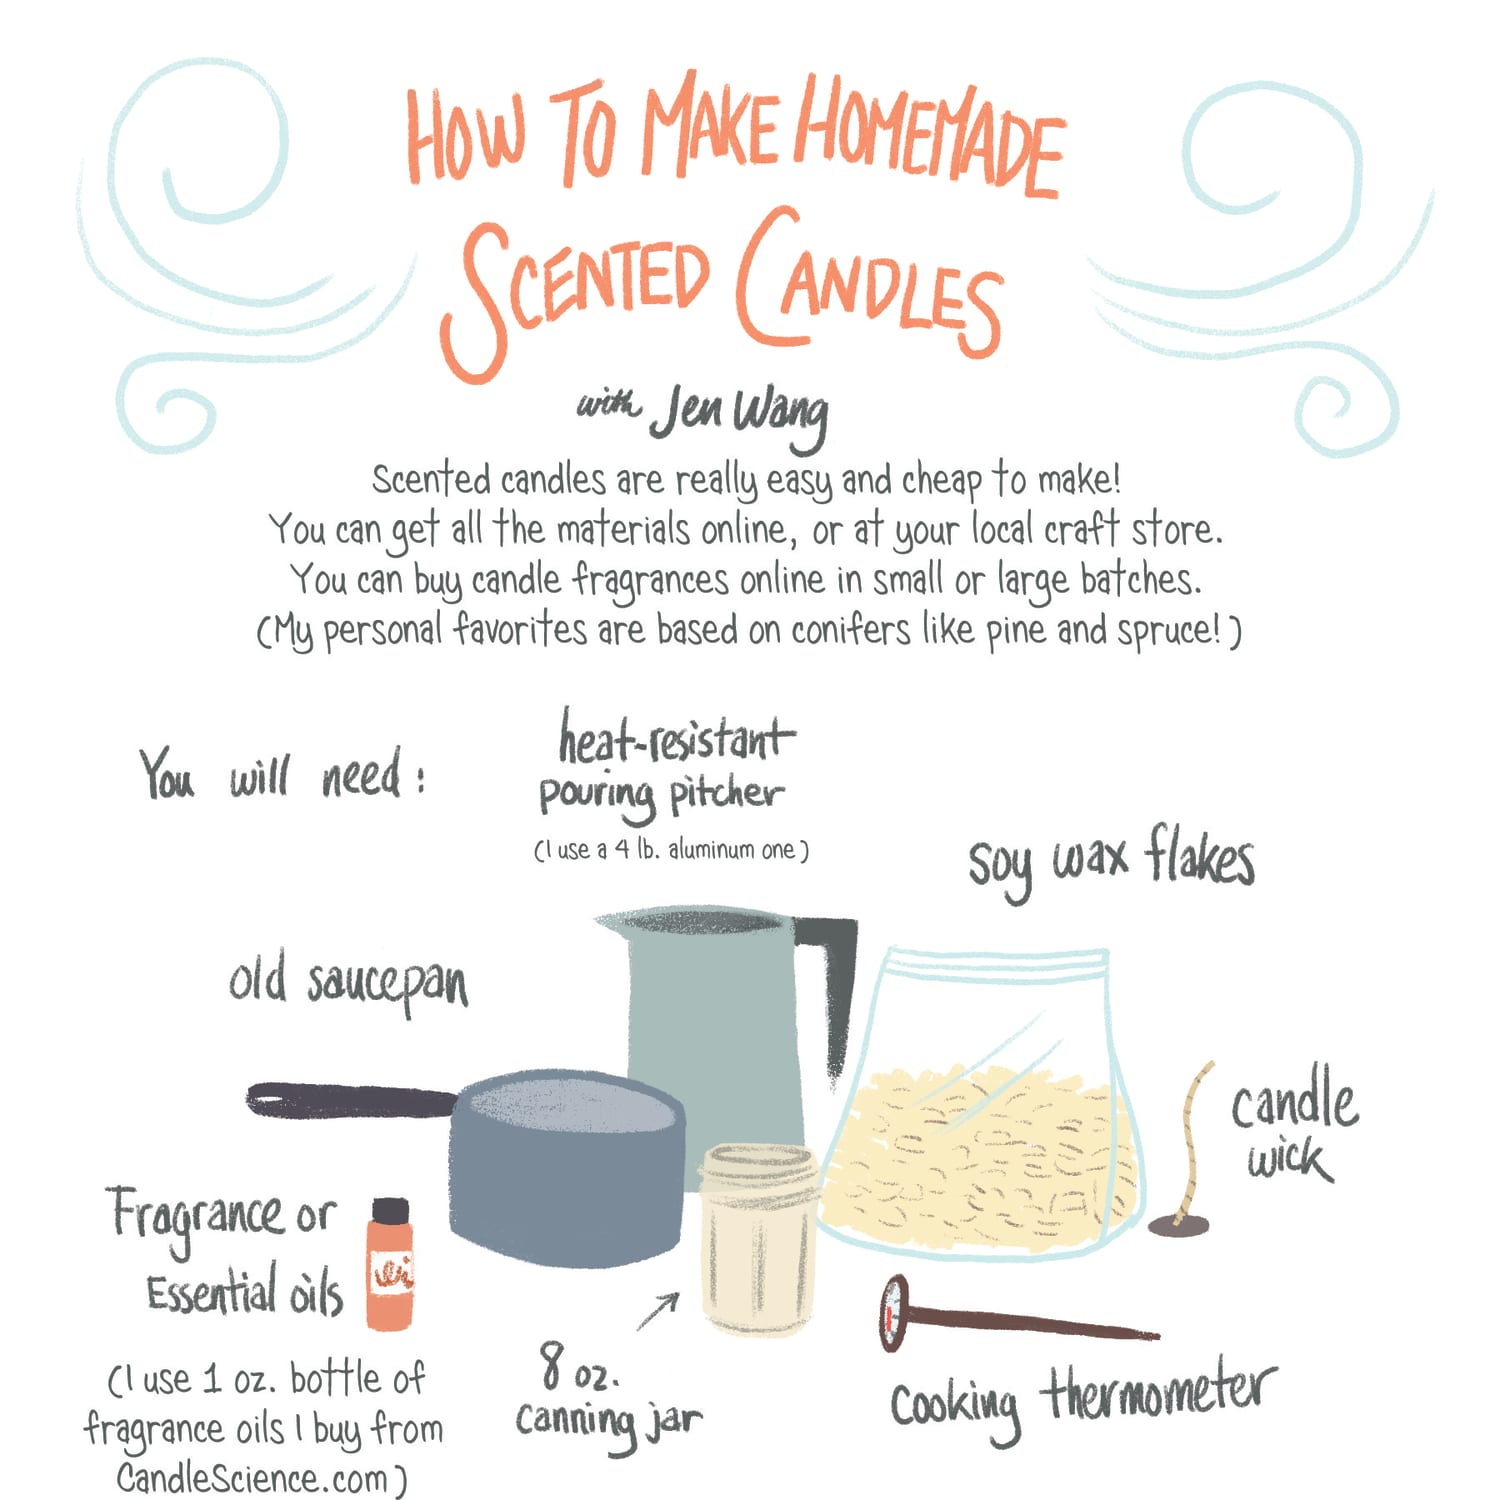 HOW TO MAKE HOMEMADE
SCENTED CANDLES
with Jen Wang
Scented candles are really easy and cheap to make!
You can get all the materials online, or at your local craft store.
You can buy candle fragrances online in small or large batches.
(My personal favorites are based on conifers like pine and spruce!)
You will need:
heat-resistant
pouring pitcher
(I use a 4 lb. aluminum one)
soy wax flakes
old saucepan
candle
wick
Fragrance or
Essential oils
(I use 1 oz. bottle of
fragrance oils I buy from
CandleScience.com)
8 oz.
canning jar
cooking thermometer